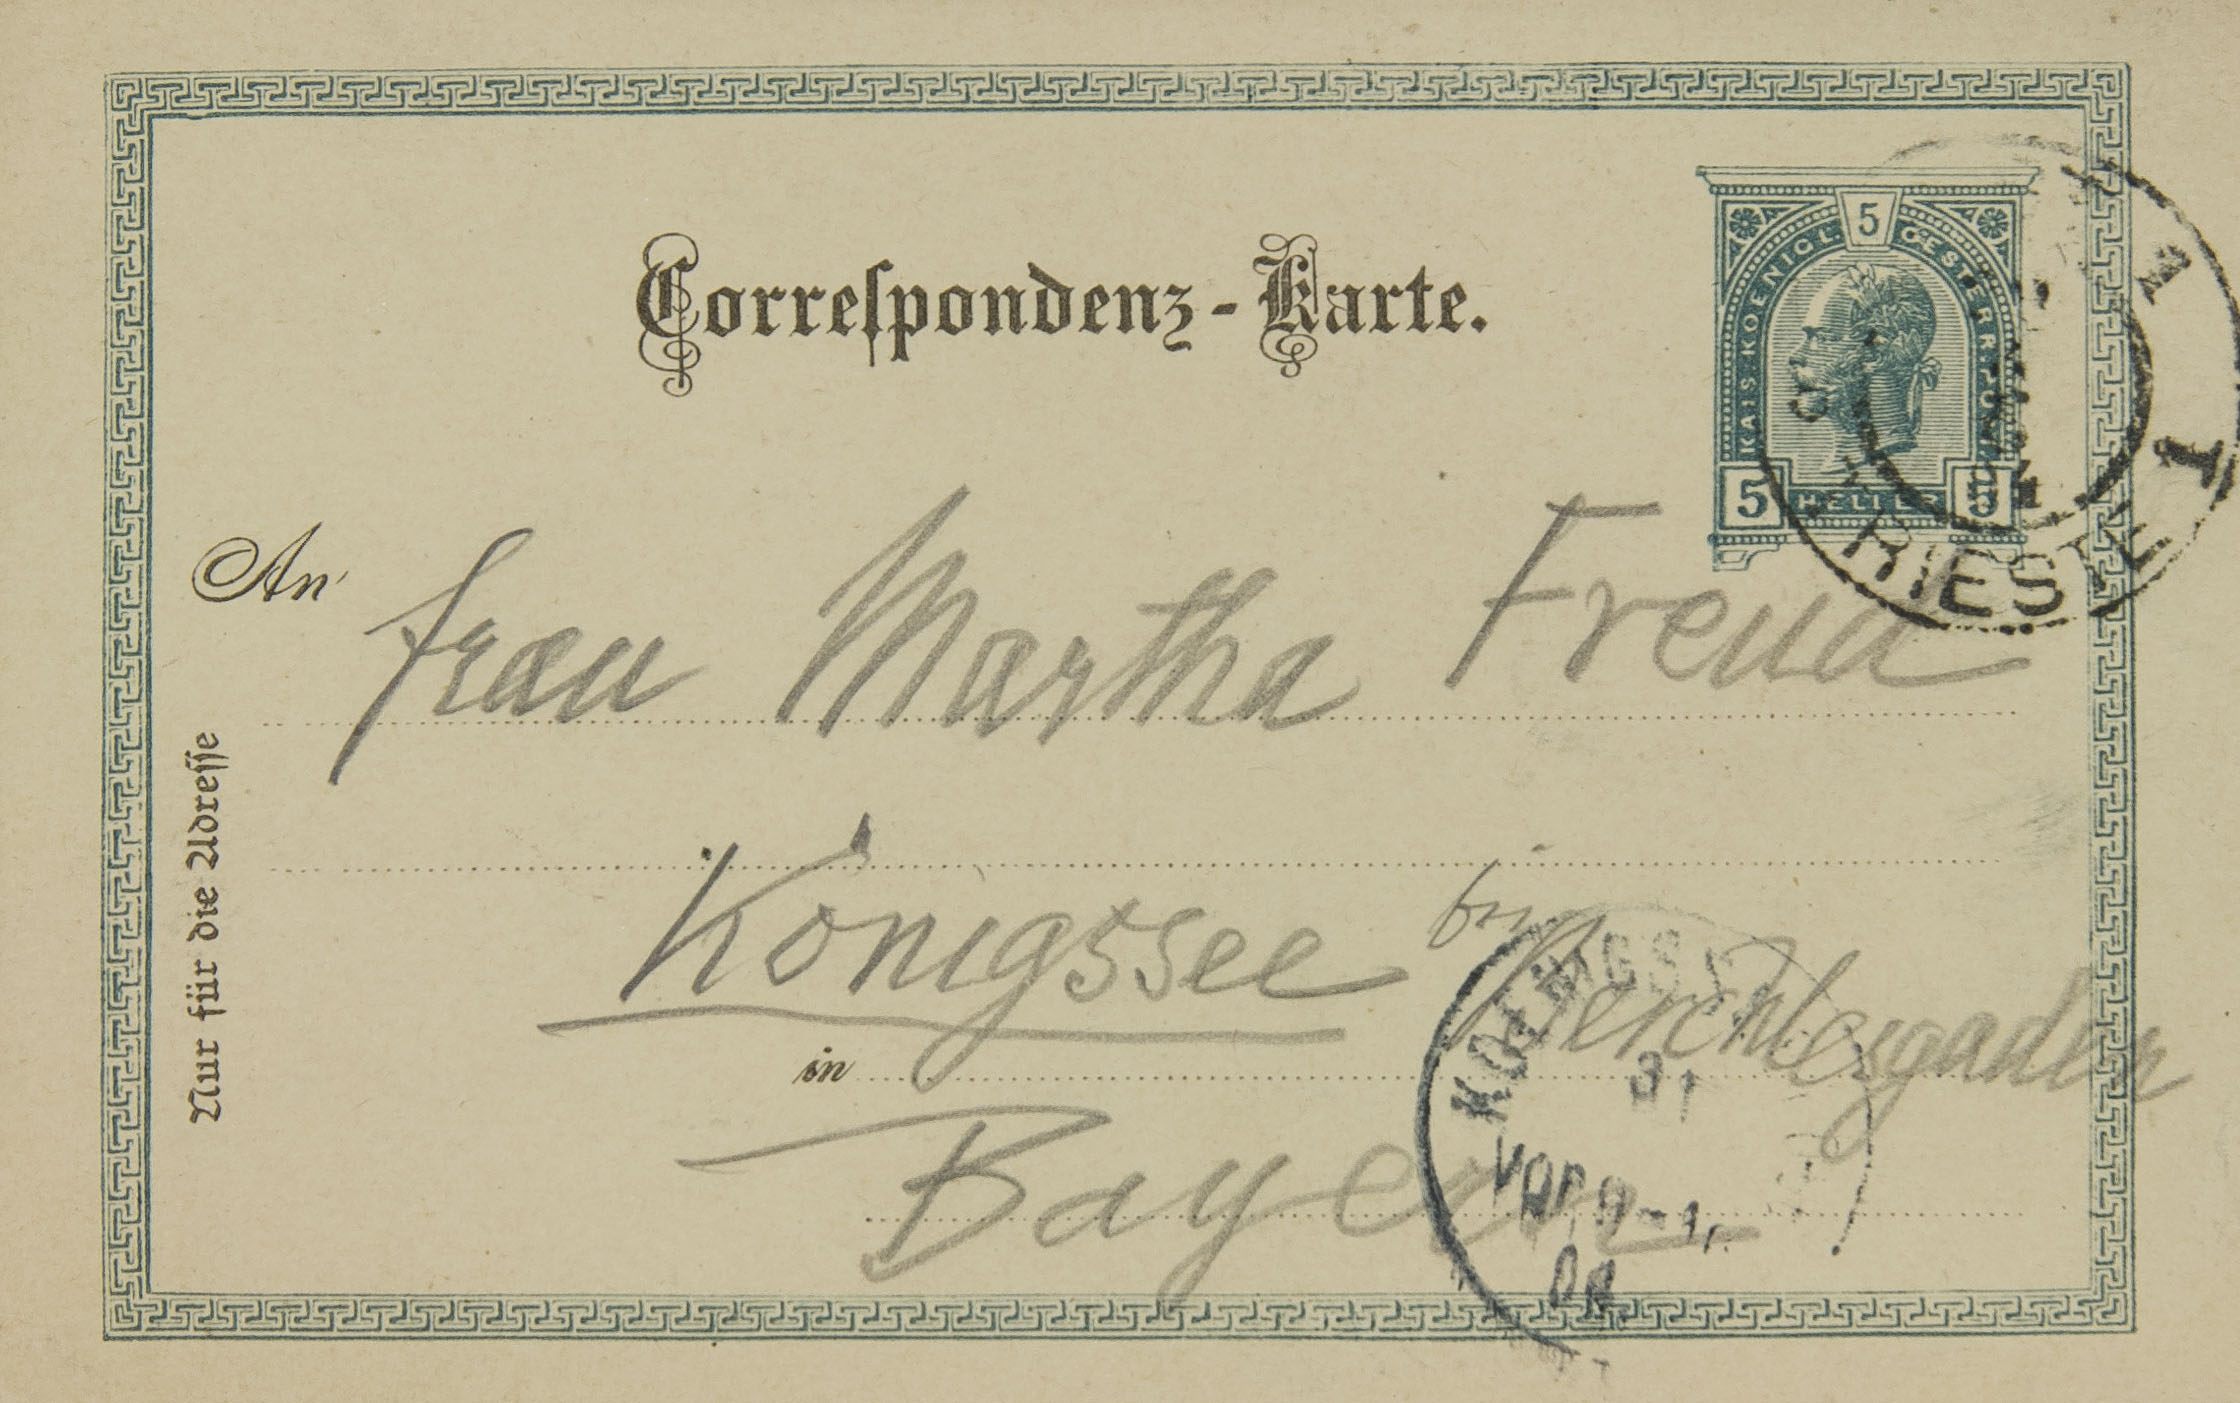 Correspondenz-Karte.
5
KAIS. KOENIGL. OESTERR. POST
5 HELLER 5
TRIESTE
1
An
Frau Martha Freud
Königssee bei Berchtesgaden
in
Bayern
Nur für die Adresse
KOENIGSSEE
31
VORM